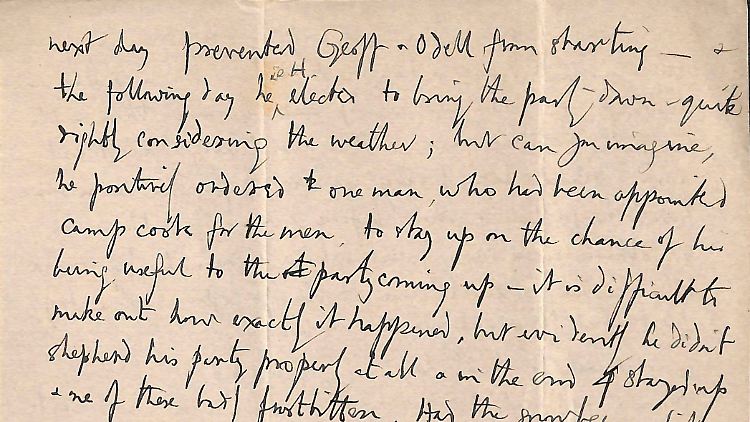 next day prevented Geoff & Odell from starting — &
the following day he ie H. elected to bring the party down - quite
rightly considering the weather; but can you imagine,
he positively ordered one man, who had been appointed
camp cook for the men, to stay up on the chance of his
being useful to the party coming up — it is difficult to
make out how exactly it happened, but evidently he didn't
shepherd his party properly at all & in the end 4 stayed up
& one of these badly frostbitten. Had the